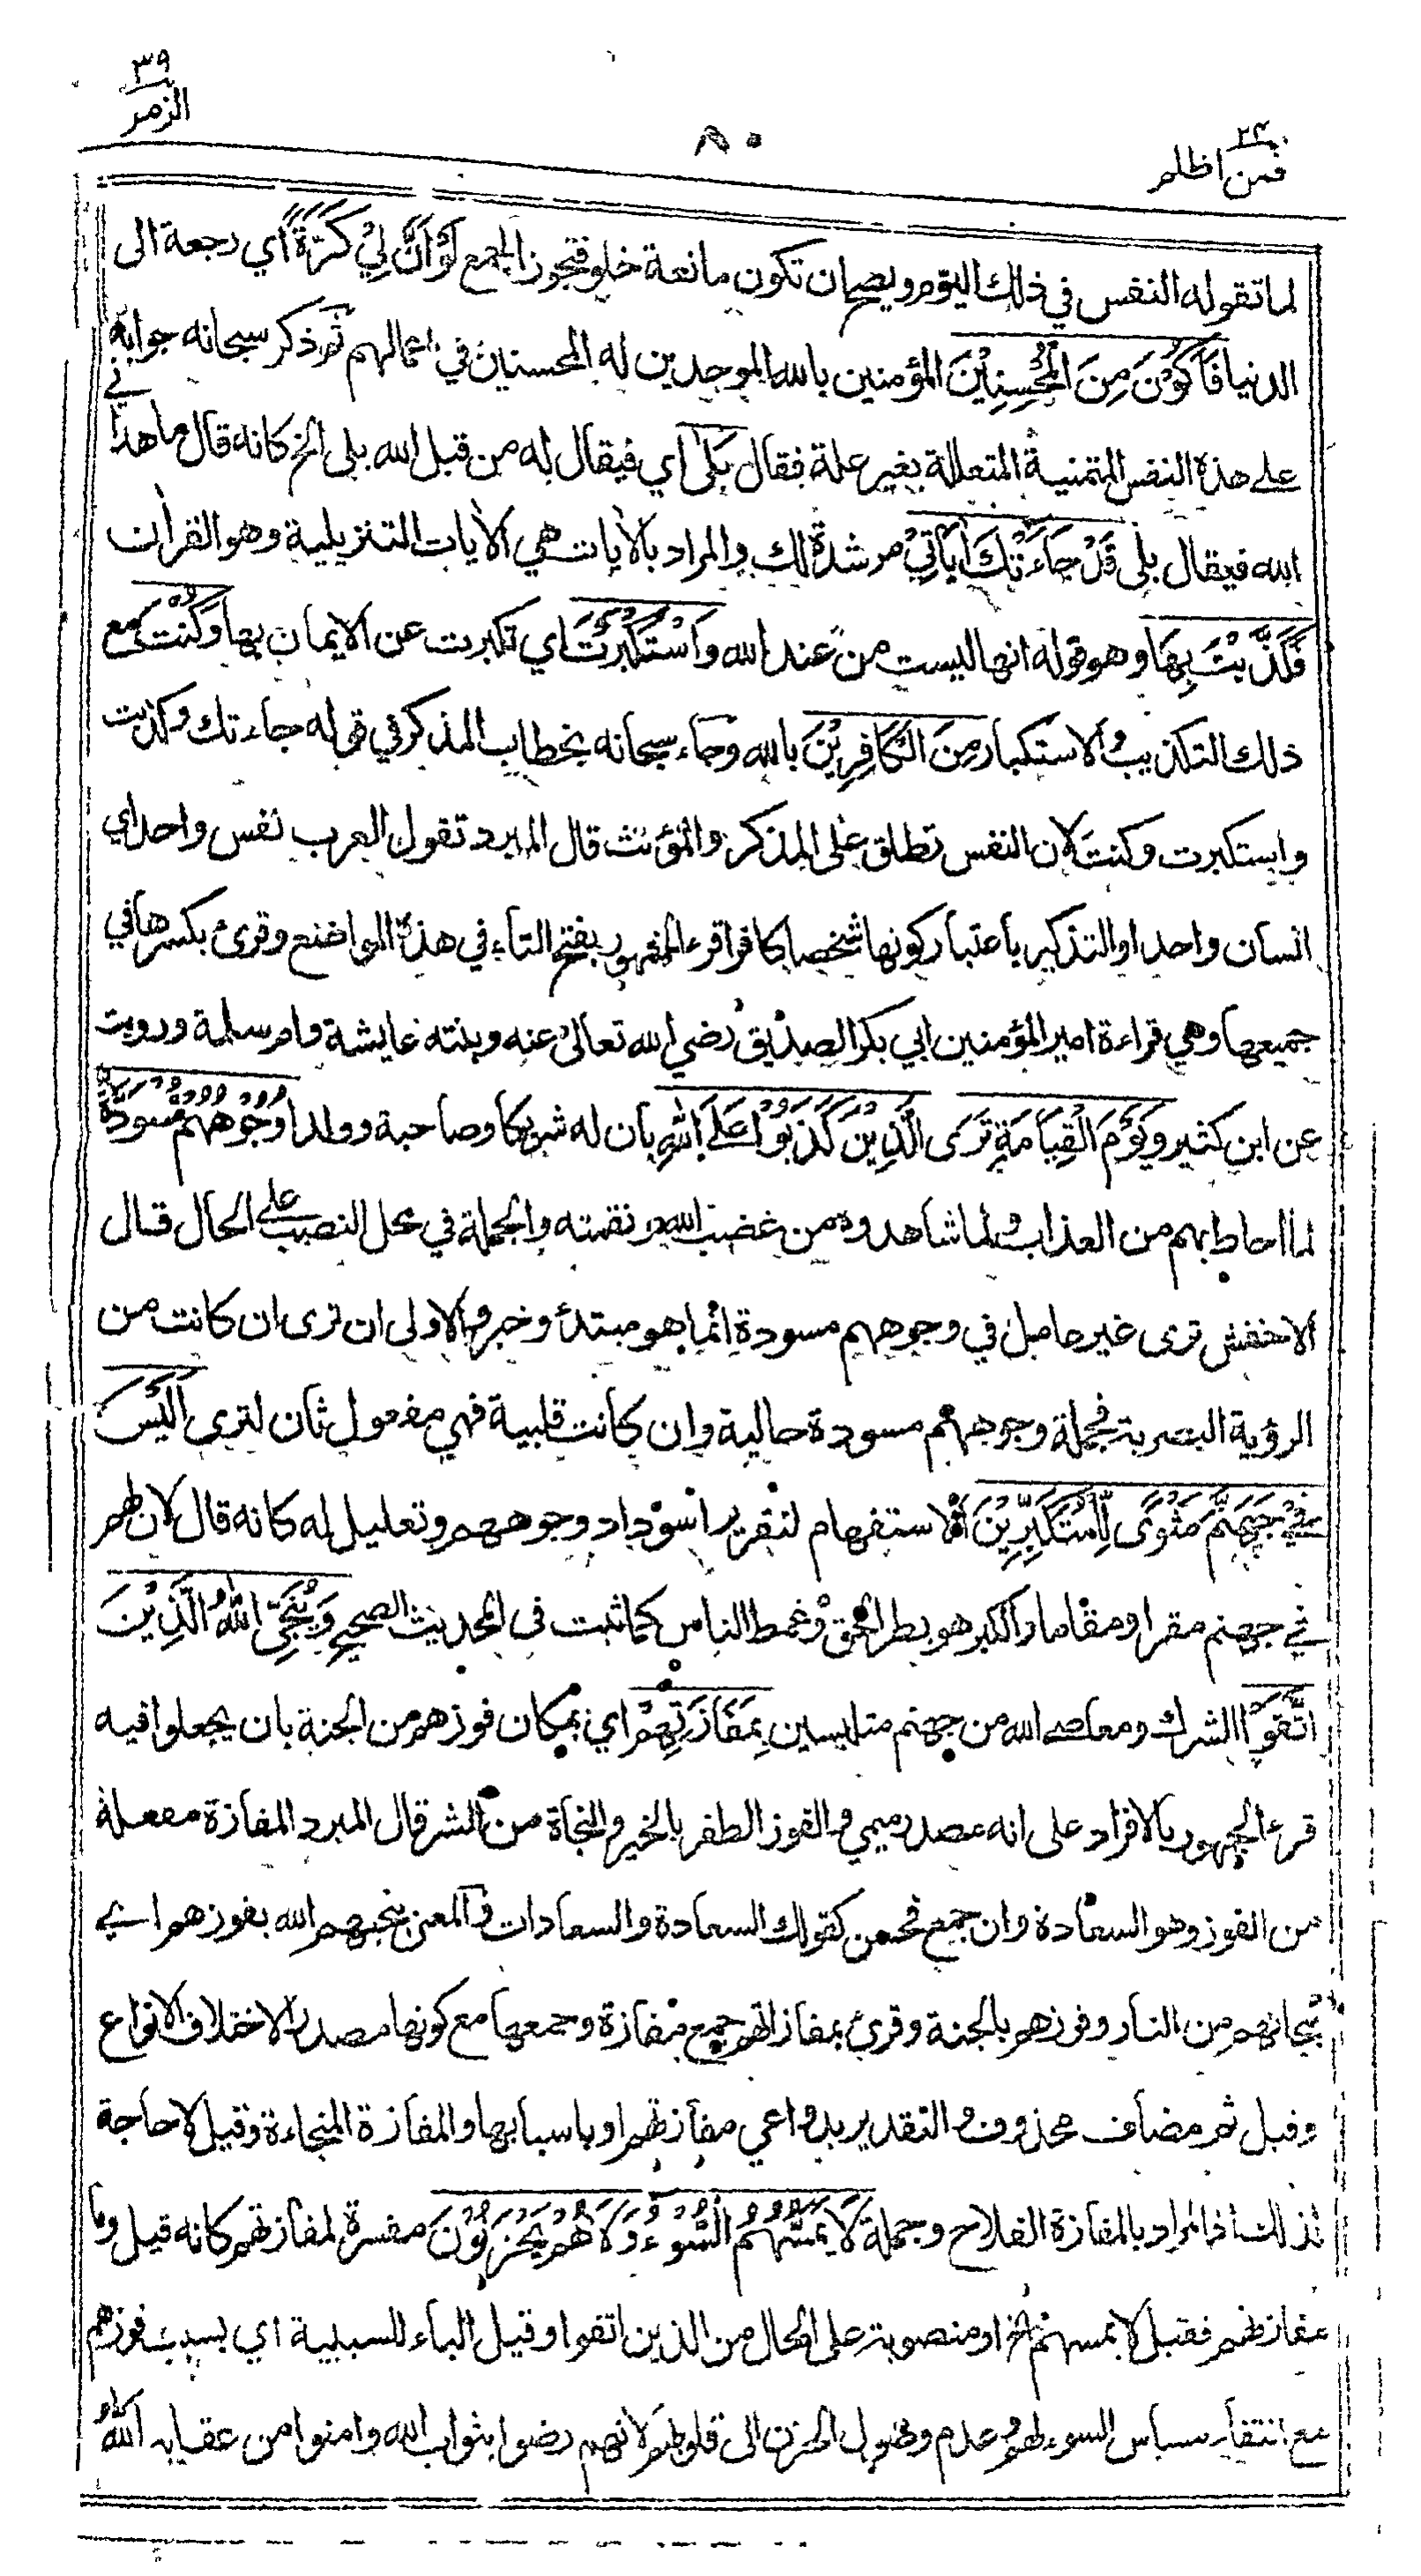 ٣٩
الزمر
٨٠
٢٤
فمن اظلم
لما تقوله النفس في ذلك اليوم ويصح ان تكون مانعة خلو فتجوز الجمع لَوْ اَنَّ لِيْ كَرَّةً اي رجعة الى
الدنيا فَاَكُوْنَ مِنَ الْمُحْسِنِيْنَ المؤمنين بالله الموحدين له المحسنين في اعمالهم ثم ذكر سبحانه جوابه
على هذه النفس المتمنية المتعللة بغير علة فقال بَلٰى اي فيقال له من قبل الله بلى الخ كانه قال ما هداني
الله فيقال بلى قَدْ جَاءَتْكَ اٰيَاتِيْ مرشدة لك والمراد بالاٰيات هي الاٰيات التنزيلية وهو القراٰن
فَكَذَّبْتَ بِهَا وهو قوله انها ليست من عند الله وَاسْتَكْبَرْتَ اي تكبرت عن الايمان بها وَكُنْتَ مع
ذلك التكذيب والاستكبار مِنَ الْكَافِرِيْنَ بالله وجاء سبحانه بخطاب المذكر في قوله جاءتك وكذبت
واستكبرت وكنت لان النفس تطلق على المذكر والمؤنث قال المبرد تقول العرب نفس واحد اي
انسان واحد او التذكير باعتبار كونها شخصا كافرا قرء الجمهور بفتح التاء في هذه المواضع وقرئ بكسرها في
جميعها وهي قراءة امير المؤمنين ابي بكر الصديق رضي الله تعالى عنه وبنته عايشة وام سلمة ورويت
عن ابن كثير وَيَوْمَ الْقِيَامَةِ تَرَى الَّذِيْنَ كَذَبُوْا عَلَى اللهِ بان له شريكا وصاحبة وولدا وُجُوْهُهُمْ مُّسْوَدَّةٌ
لما احاط بهم من العذاب ولما شاهدوه من غضب الله ونقمته والجملة في محل النصب على الحال قال
الاخفش ترى غير عامل في وجوههم مسودة انما هو مبتدأ وخبر والاولى ان ترى ان كانت من
الرؤية البصرية فجملة وجوههم مسودة حالية وان كانت قلبية فهي مفعول ثان لترى اَلَيْسَ
فِيْ جَهَنَّمَ مَثْوًى لِّلْمُتَكَبِّرِيْنَ الاستفهام لتقرير اسوداد وجوههم وتعليل له كانه قال لان لهم
في جهنم مقرا ومقاما والكبر هو بطر الحق وغمط الناس كما ثبت في الحديث الصحيح وَيُنَجِّي اللهُ الَّذِيْنَ
اتَّقَوْا الشرك ومعاصي الله من جهنم متلبسين بِمَفَازَتِهِمْ اي بمكان فوزهم من الجنة بان يجعلوا فيه
قرء الجمهور بالافراد على انه مصدر ميمي والفوز الظفر بالخير والنجاة من الشر قال المبرد المفازة مفعلة
من الفوز وهو السعادة وان جمع فحسن كقولك السعادة والسعادات والمعنى ينجيهم الله بفوزهم اي
بنجاتهم من النار وفوزهم بالجنة وقرئ بمفازاتهم جمع مفازة وجمعها مع كونها مصدرا لاختلاف الانواع
وقيل ثم مضاف محذوف والتقدير بدواعي مفازتهم او باسبابها والمفازة المنجاة وقيل لا حاجة
لذلك اذ المراد بالمفازة الفلاح وجملة لَا يَمَسُّهُمُ السُّوْءُ وَلَا هُمْ يَحْزَنُوْنَ مفسرة لمفازتهم كانه قيل وما
مفازتهم فقيل لا يمسهم الخ او منصوبة على الحال من الذين اتقوا وقيل الباء للسببية اي بسبب فوزهم
مع انتفاء مساس السوء لهم وعدم وصول الحزن الى قلوبهم لانهم رضوا بثواب الله وامنوا من عقابه اَللهُ